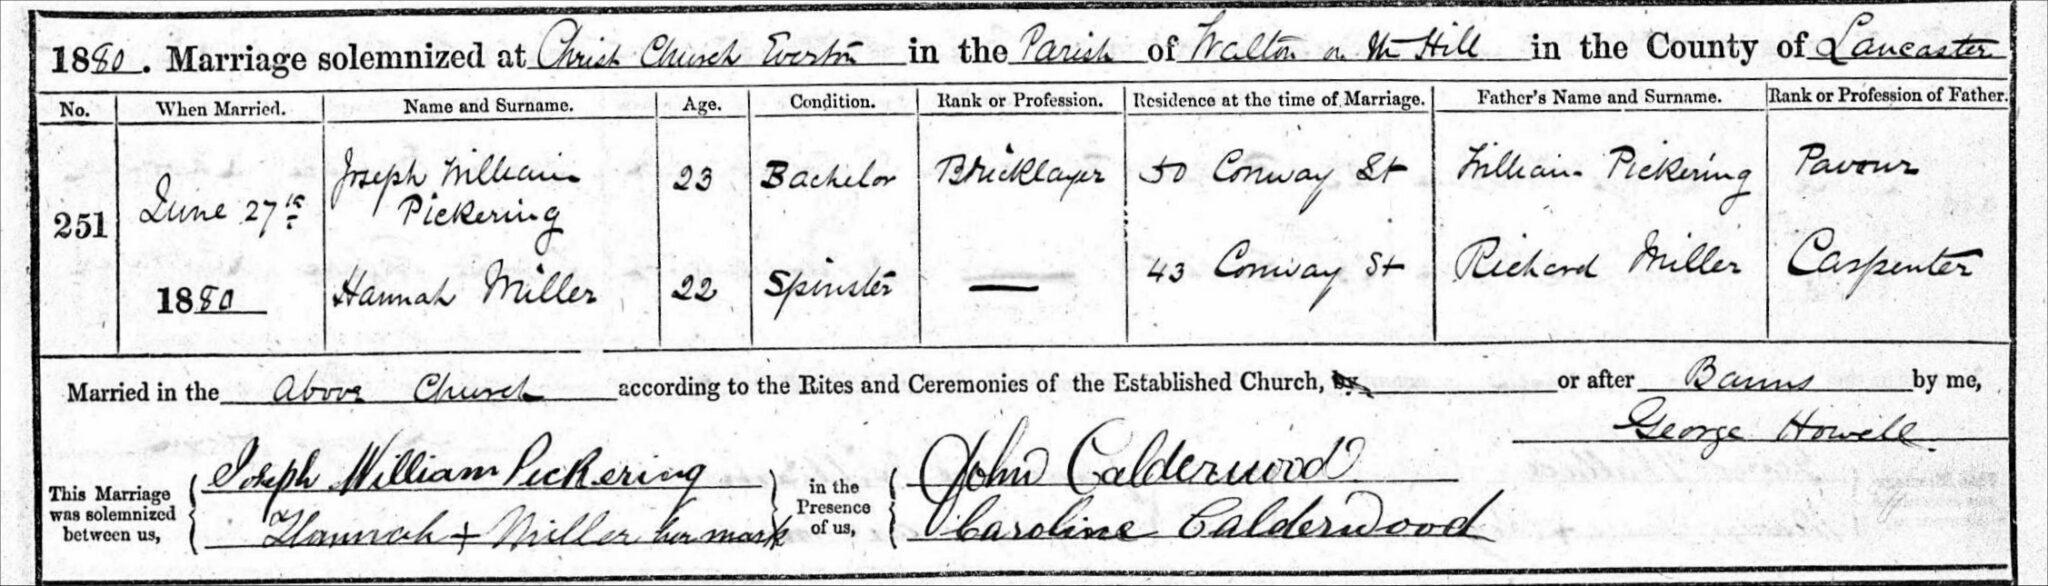 1880. Marriage solemnized at Christ Church Everton in the Parish of Walton on the Hill in the County of Lancaster
No. When Married. Name and Surname. Age. Condition. Rank or Profession. Residence at the time of Marriage. Father's Name and Surname. Rank or Profession of Father.
251 June 27th 1880 Joseph William Pickering 23 Bachelor Bricklayer 50 Conway St William Pickering Pavour
Hannah Miller 22 Spinster — 43 Conway St Richard Miller Carpenter
Married in the above Church according to the Rites and Ceremonies of the Established Church, by or after Banns by me,
George Howell.
This Marriage was solemnized between us, Joseph William Pickering in the Presence of us, John Calderwood
Hannah + Miller her mark Caroline Calderwood